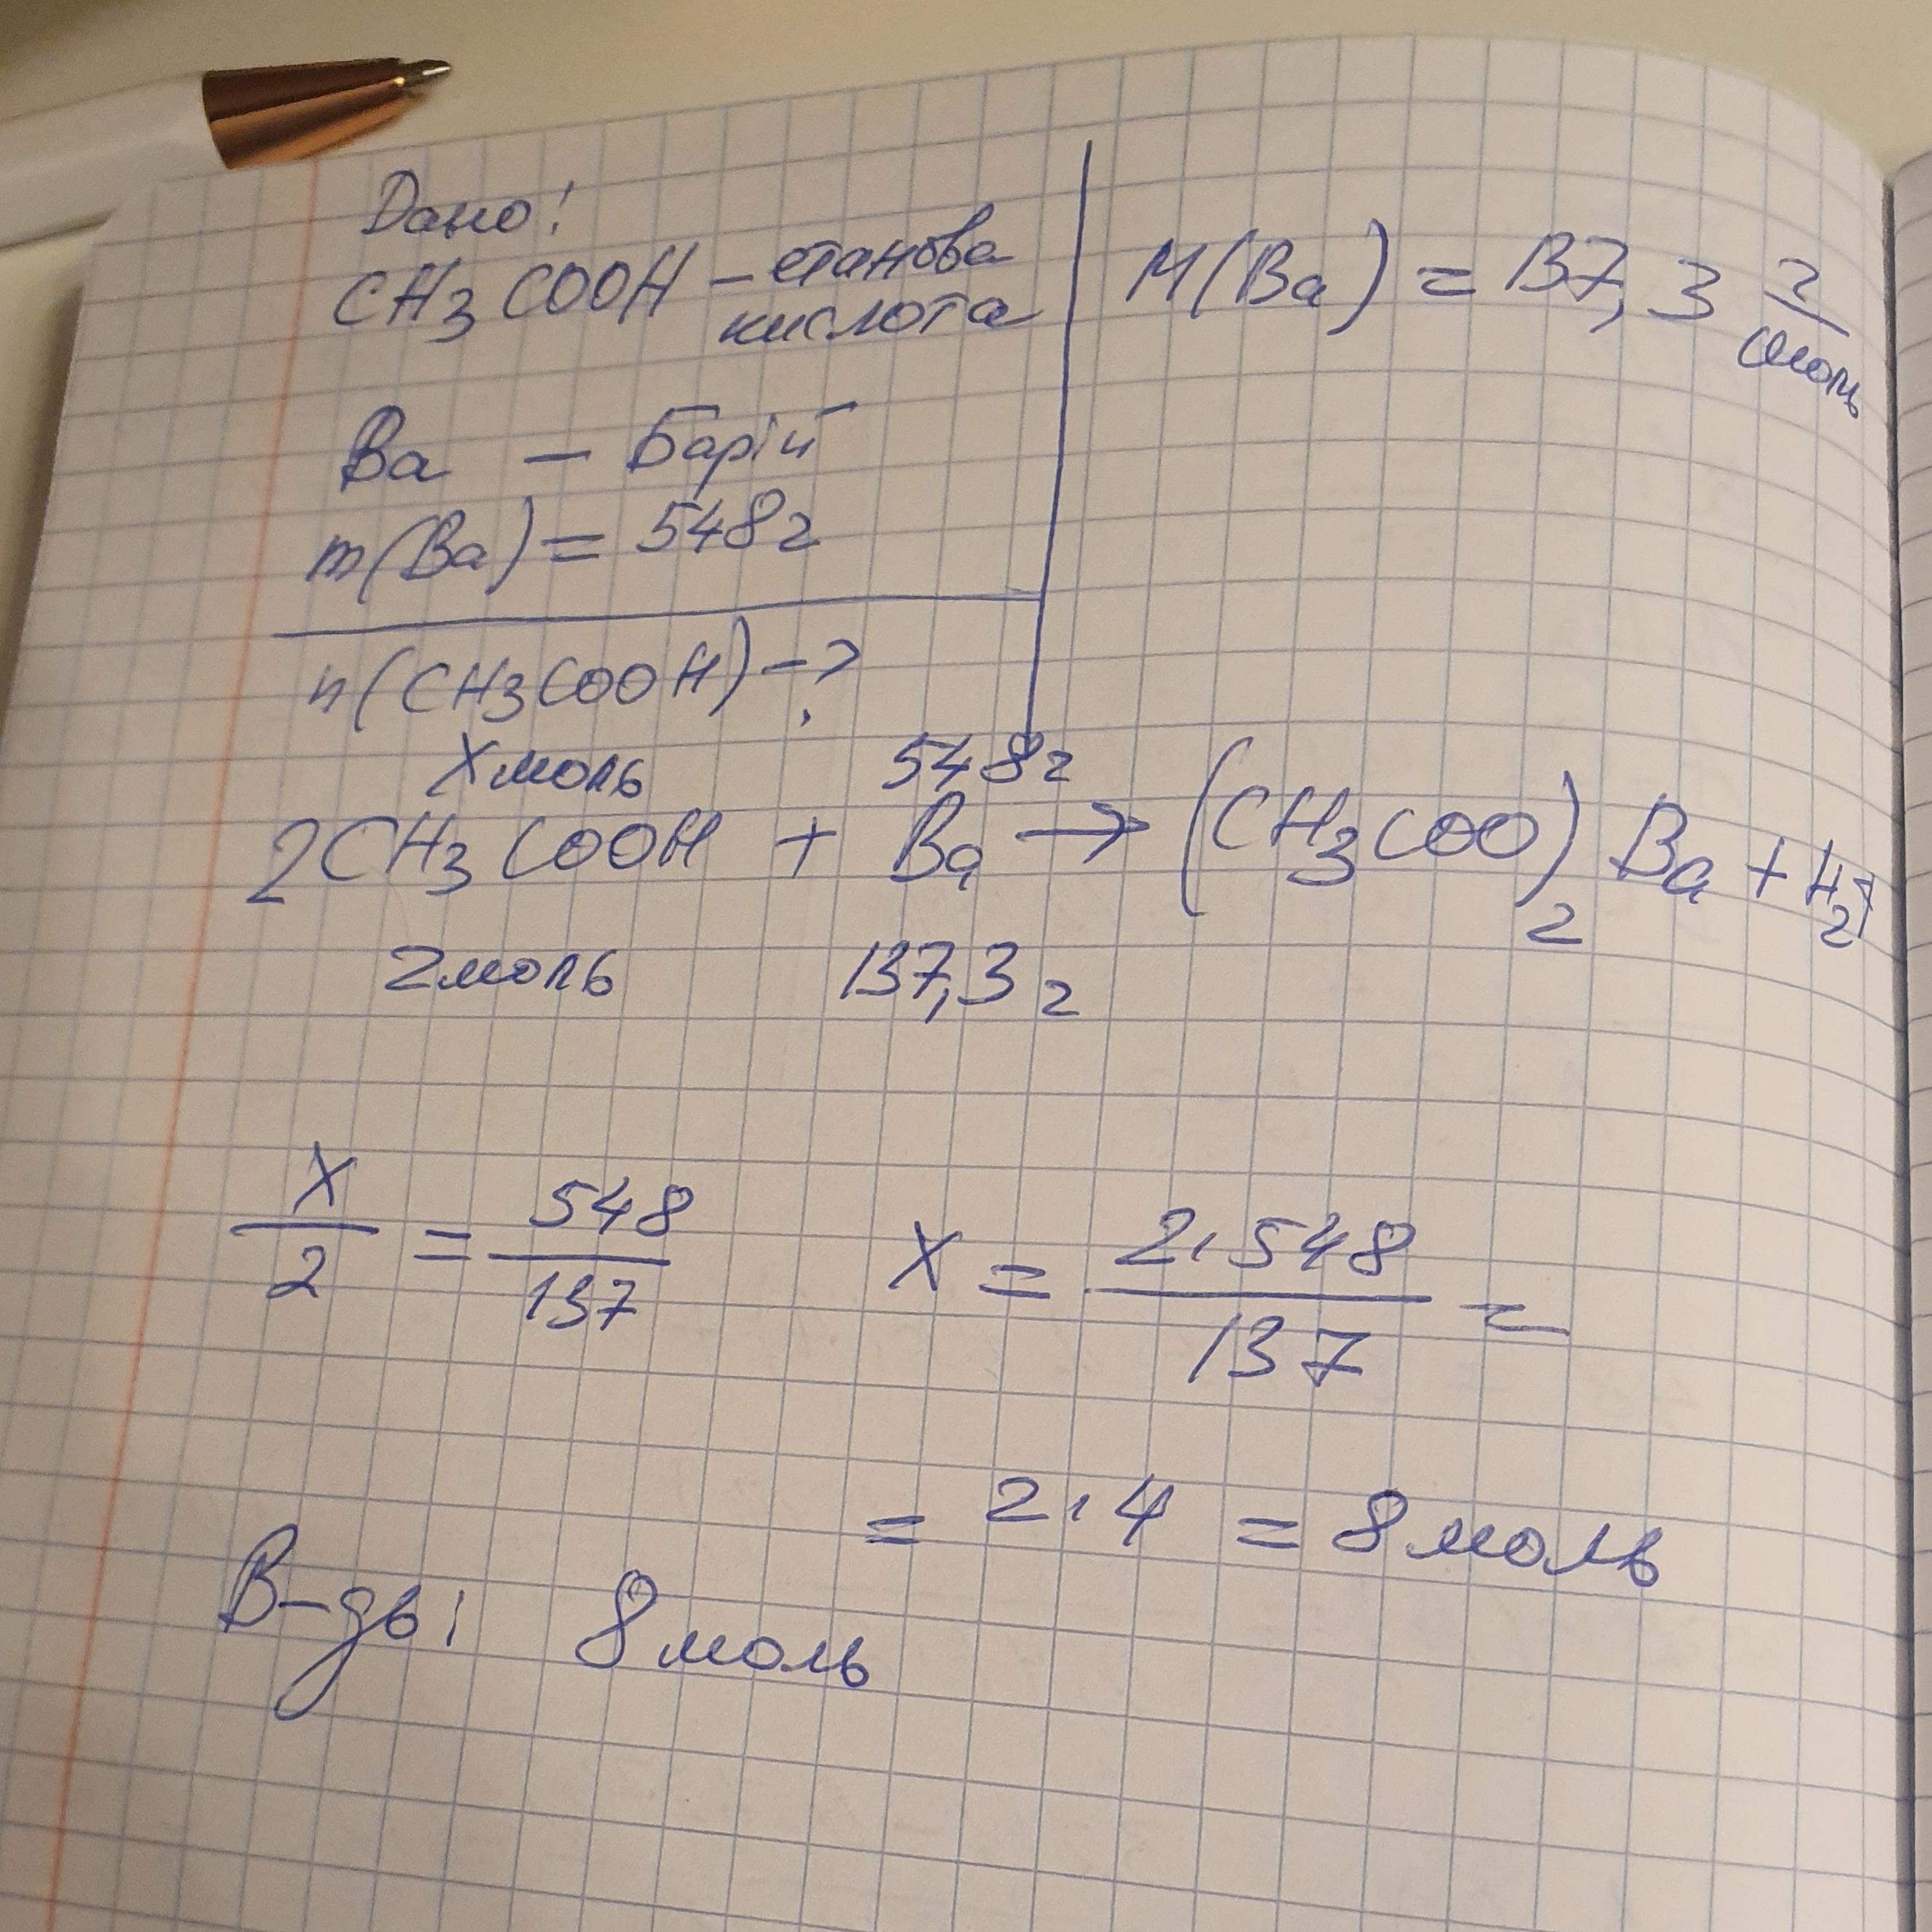 Дано:
CH3COOH – етанова
кислота
Ba – Барій
m(Ba) = 548г
n(CH3COOH) – ?
M(Ba) = 137,3 г/моль
X моль 548г
2CH3COOH + Ba → (CH3COO)2Ba + H2↑
2моль 137,3 г
X/2 = 548/137 X = 2·548/137 =
= 2·4 = 8 моль
В-дь: 8 моль